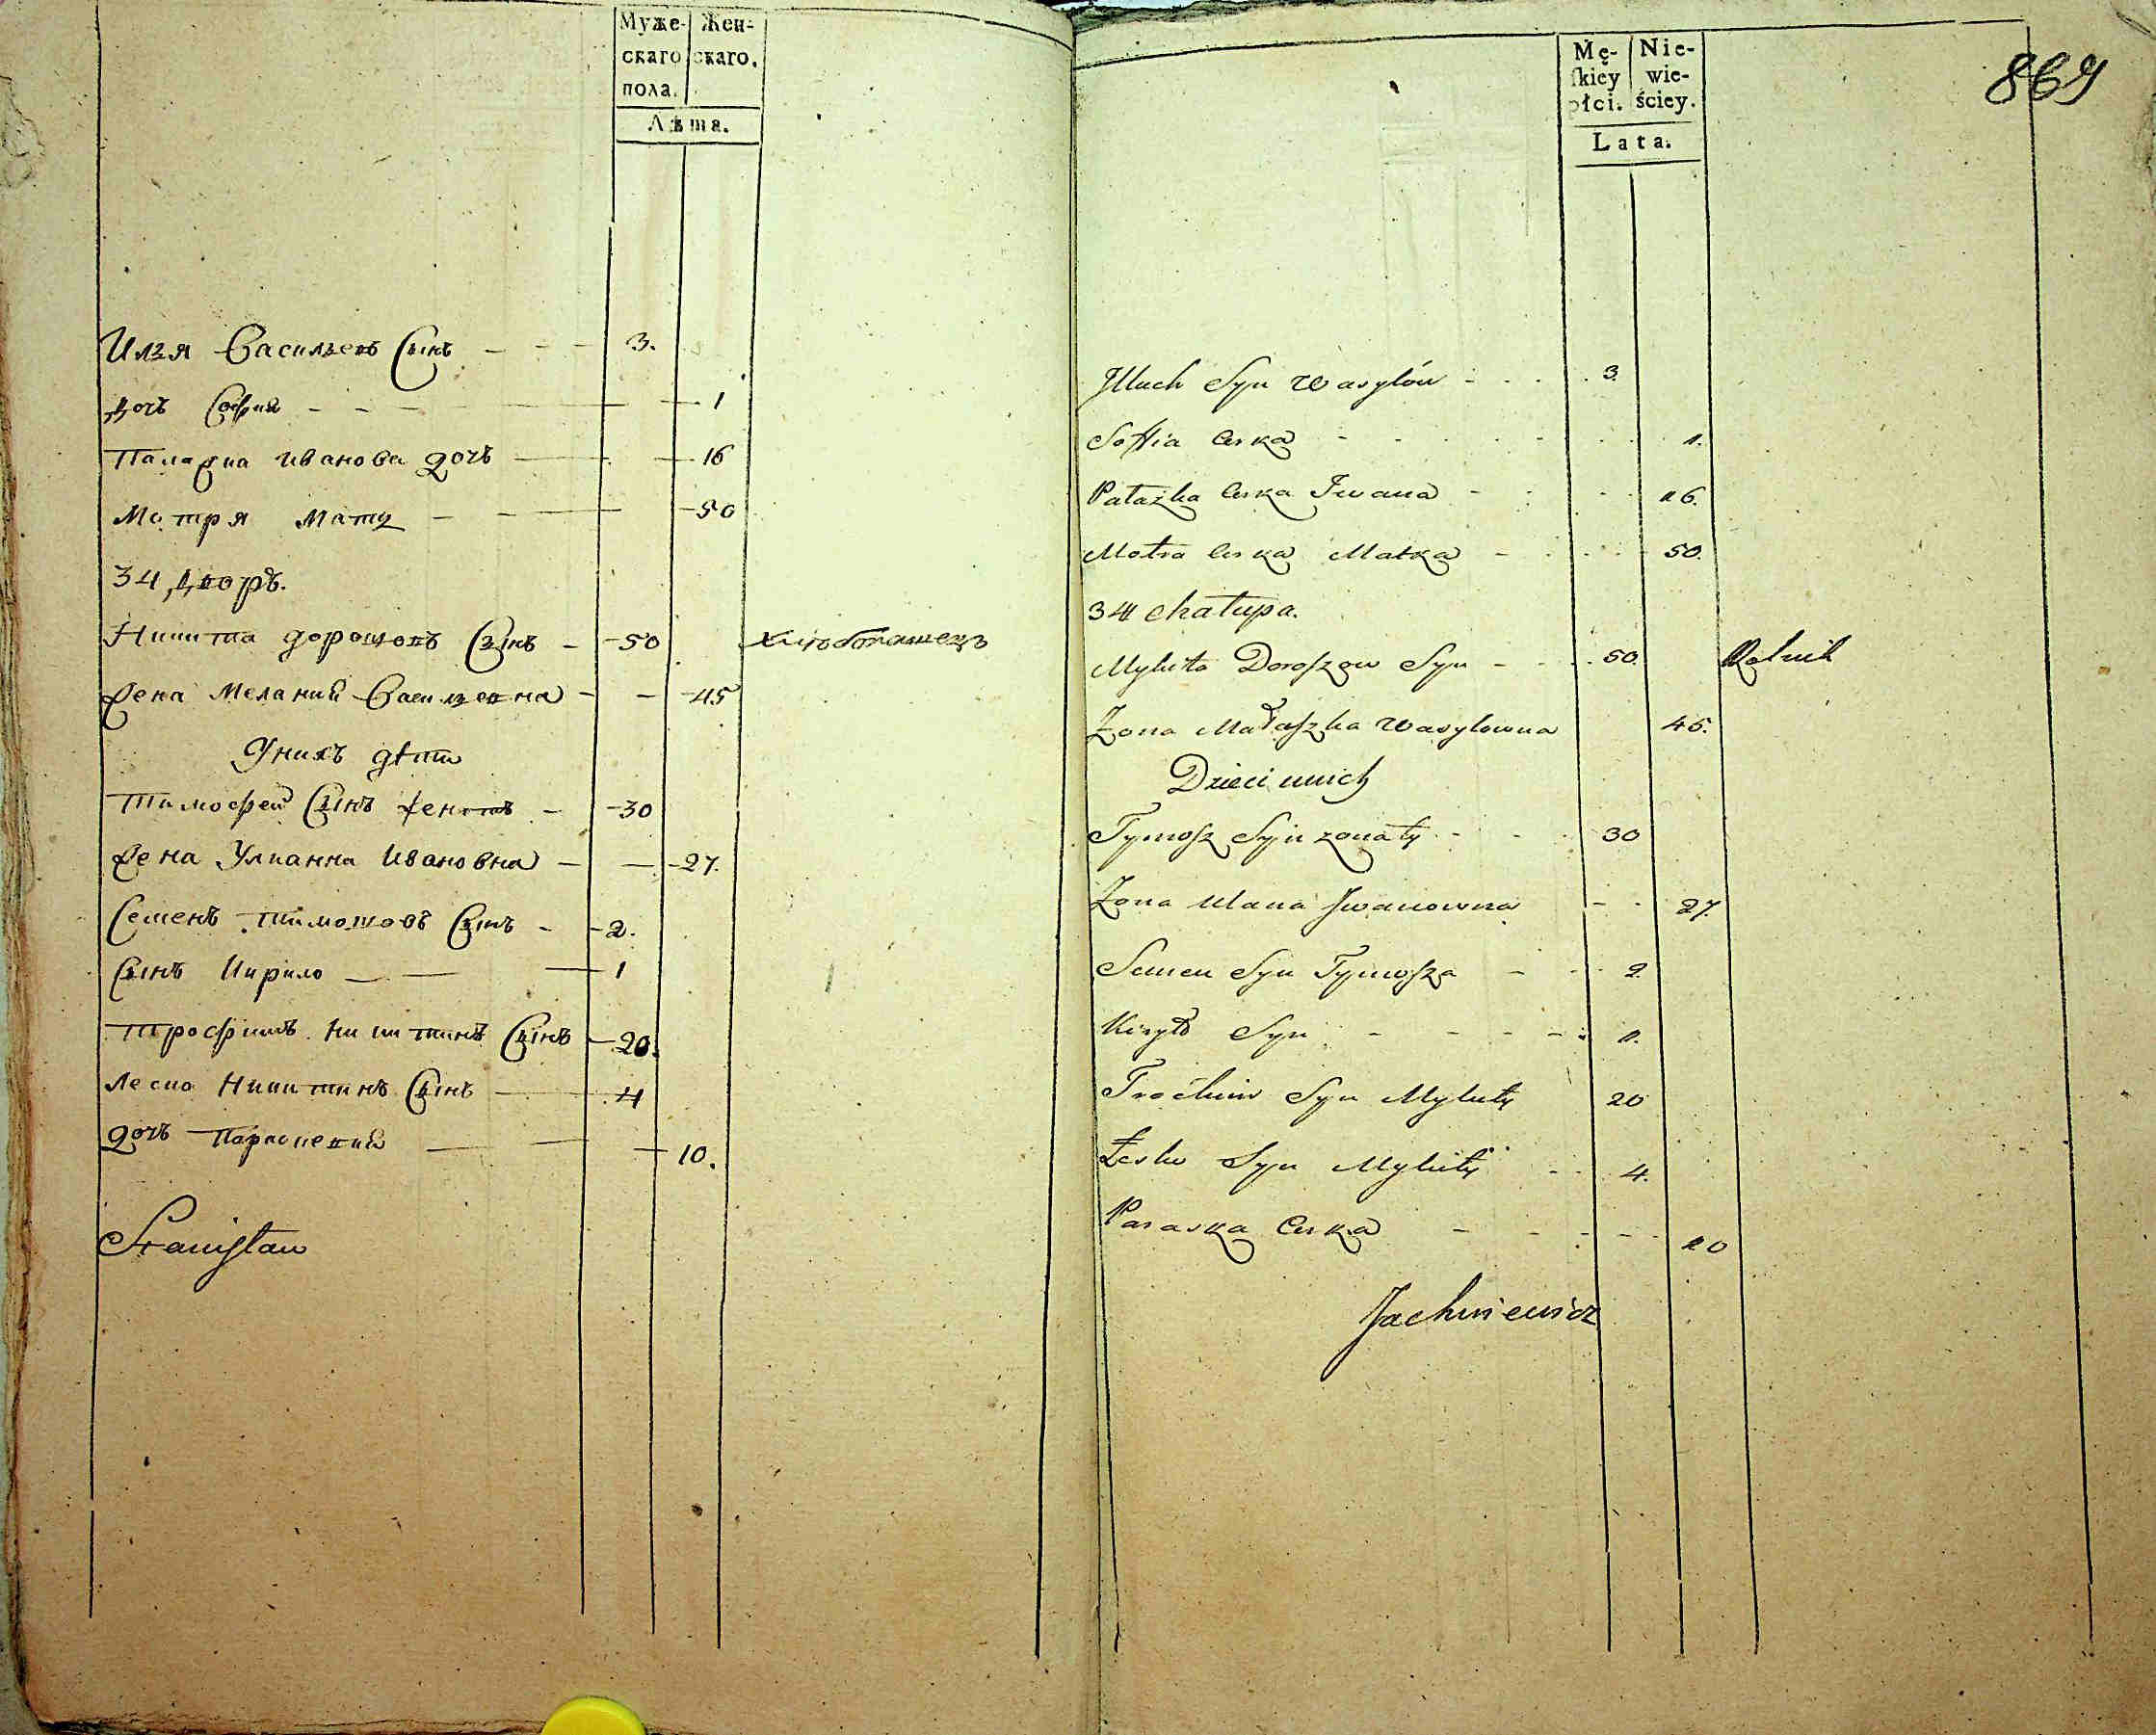 Муже- Жен-
скаго скаго.
пола.
Лѣта.
Илья Васильевъ Сынъ - - - 3.
дочь София - - - 1
Палагиа Иванова дочь - 16
Мотря Мать - - - 50
34 дворъ.
Никита дорошовъ Сынъ - 50 хлебопашецъ
Жена Мелания Васильевна - - 45
Уних дѣти
Тимофей Сынъ женатъ - 30
Жена Улианна Ивановна - - 27.
Семенъ Тимошовъ Сынъ - 2.
Сынъ Кирило - - - 1
Трофимъ Никитинъ Сынъ - 20.
Леско Никитинъ Сынъ - 4
дочь Парасковия - - - 10.
Stanisław
869
Mę- Nie-
ſkiey wie-
płci. ściey.
Lata.
Illuch Syn Wasylów - . . . 3.
Soffia Curka - . . . 1.
Pałazka Curka Iwana - . . 16.
Motra Curka Matka - . . 50.
34 chałupa.
Mykita Doroszow Syn - . . 50. Rolnik
Zona Małaszka Wasylowna 45.
Dzieci u nich
Tymosz Syn zonaty - - . 30
Zona Ulana Iwanowna - . 27.
Semen Syn Tymosza - - . 2.
Kiryło Syn - - - - . 1.
Trochim Syn Mykity 20
Łesko Syn Mykity . . 4.
Paraska Curka - - . - - . 10
Jachniewicz